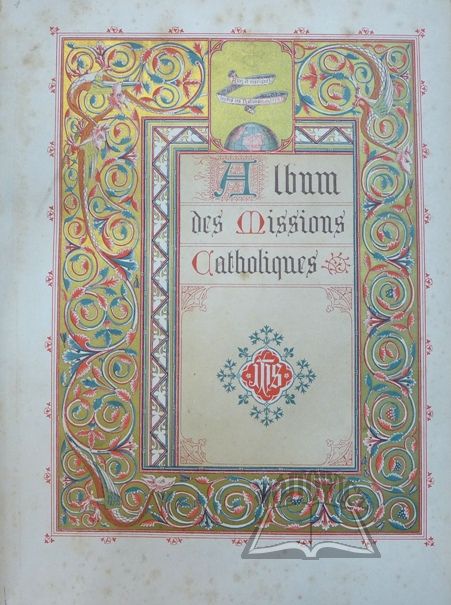 Album
des Missions
Catholiques
IHS